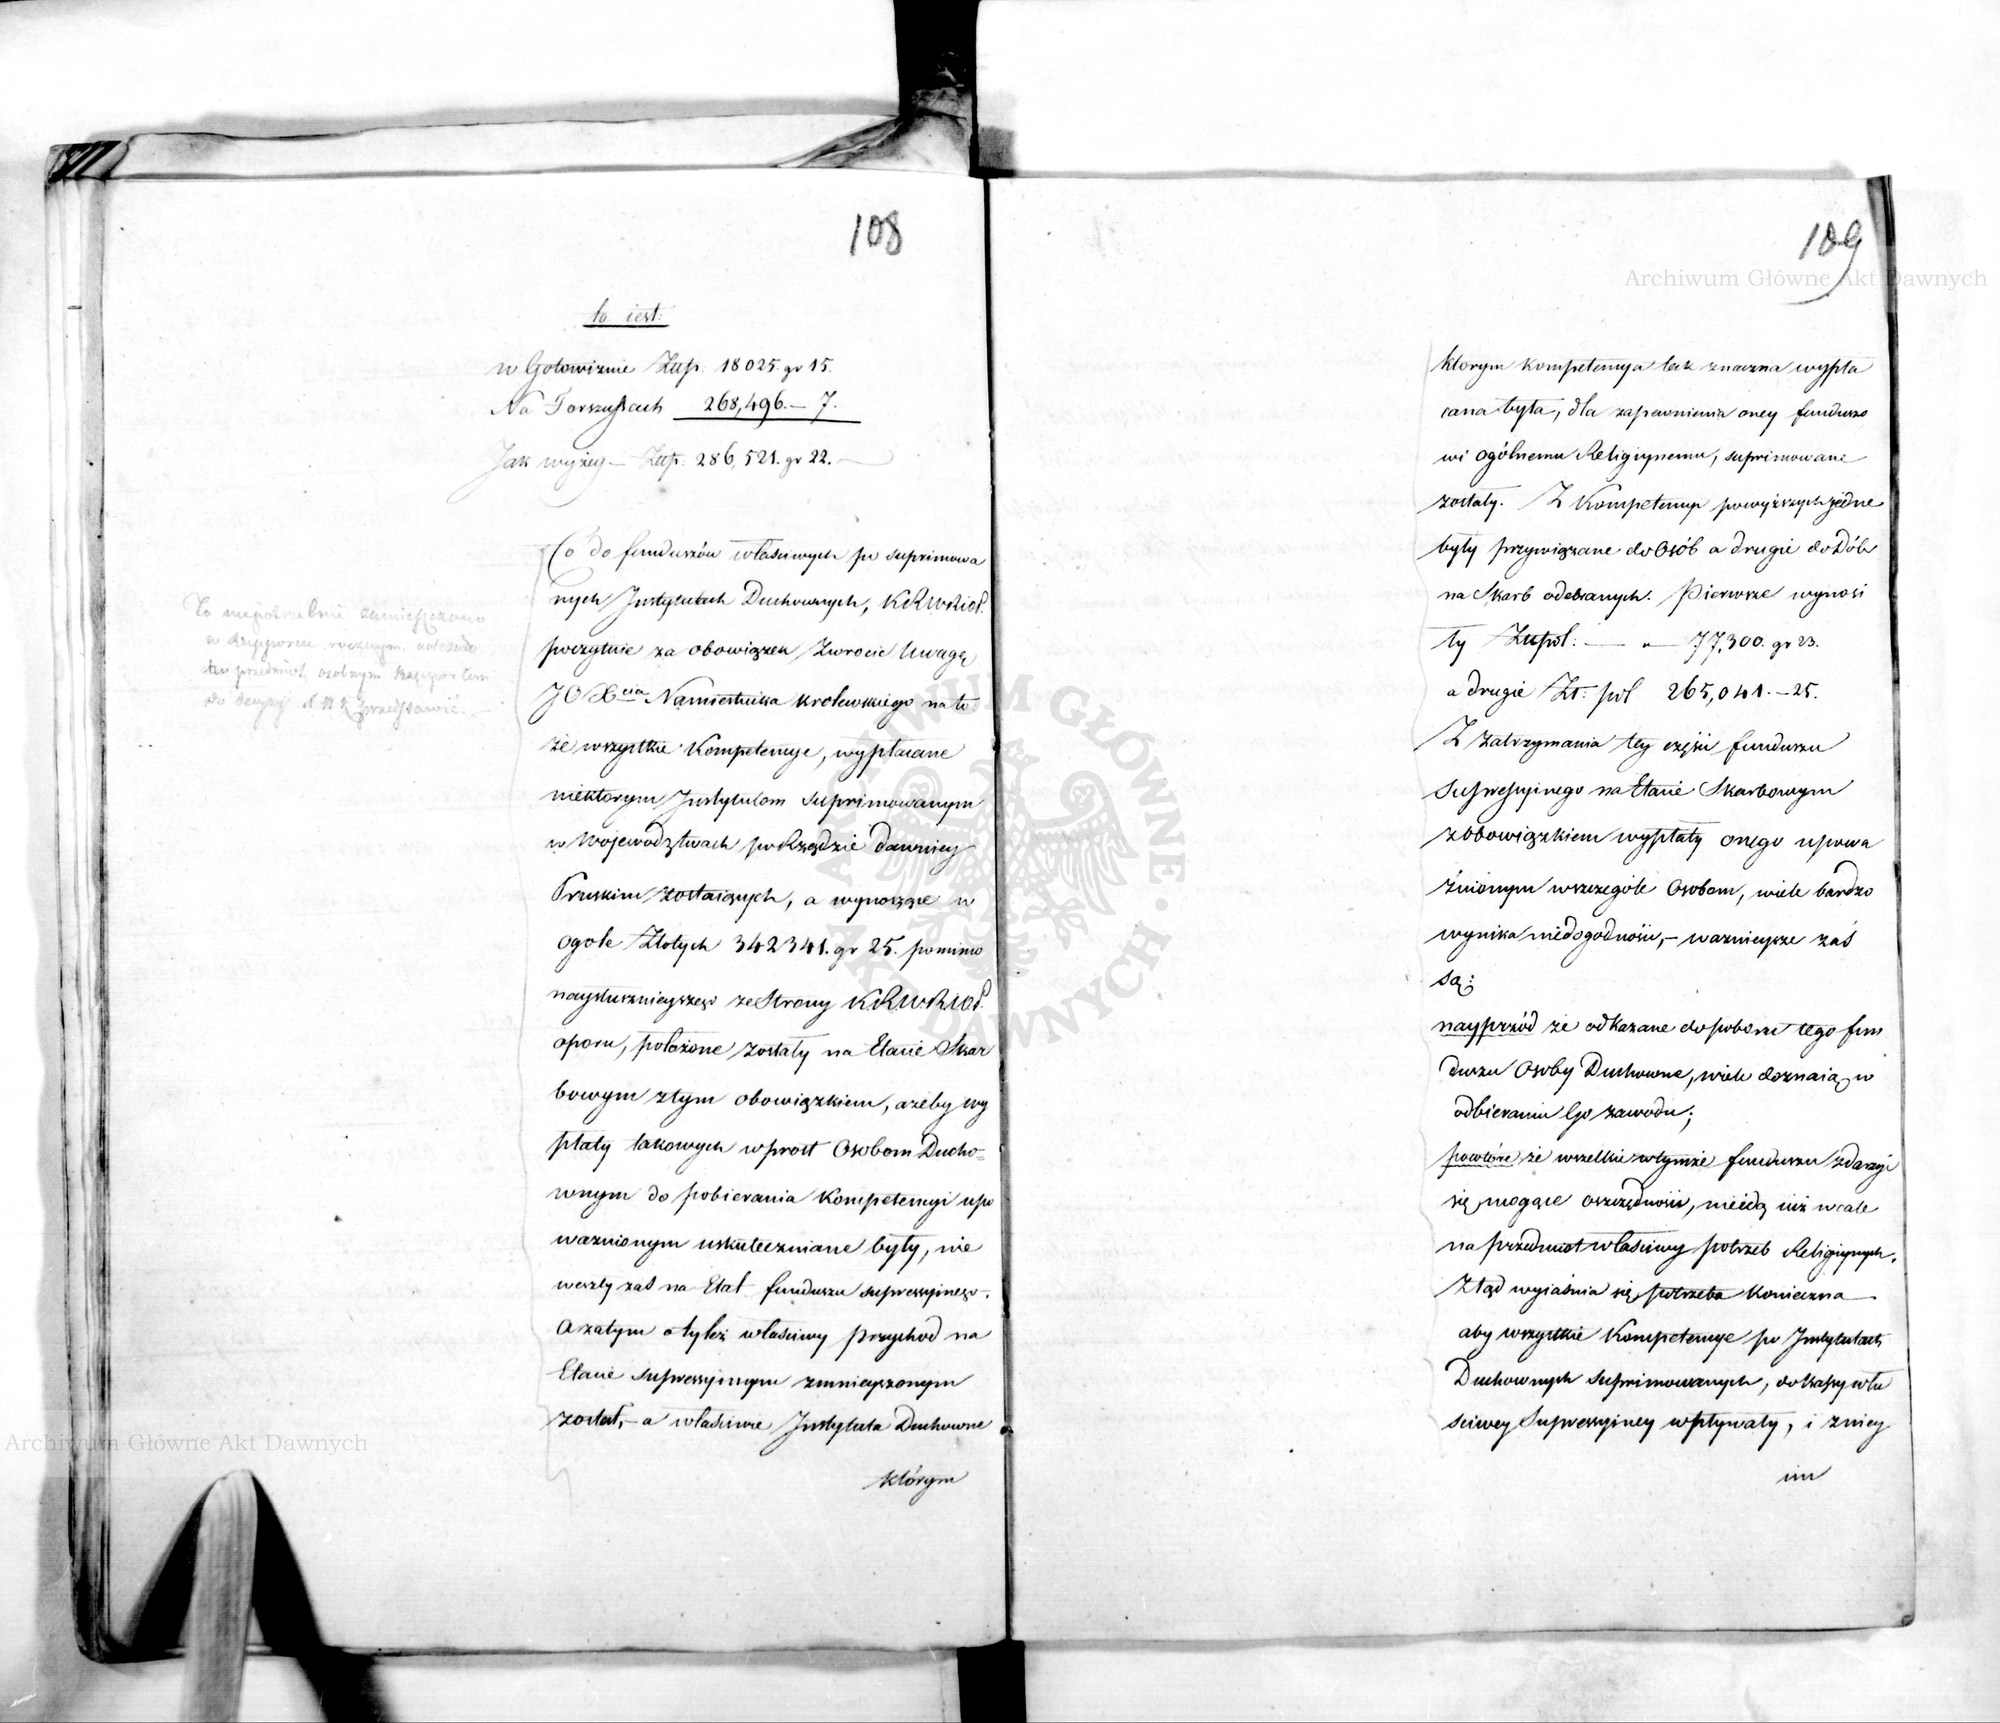 108
to iest:
w Gotowiznie Złłp. 18025. gr 15.
Na Forszusach 268,496.— 7.
Jak wyżey — Złłp. 286,521. gr 22. —
Co do funduszów właściwych po suprimowa
nych Instytutach Duchownych, KRWRiOP.
poczytuie za obowiązek zwrocić Uwagę
JO Xcia Namiestnika krolewskiego na to
że wszystkie Kompetencye, wypłacane
niektorym Instytutom suprimowanym
w Województwach po Rządzie dawniey
Pruskim zostaiących, a wynoszące w
ogole Złotych 342341. gr 25. pomimo
naysłusznieyszego ze Strony KRWRiOP.
oporu, położone zostały na Etacie Skar
bowym z tym obowiązkiem, ażeby wy
płaty takowych wprost Osobom Ducho=
wnym do pobierania Kompetencyi upo
ważnionym uskuteczniane były, nie
weszły zaś na Etat funduszu supressyinego.
A zatym o tyleż właściwy przychod na
Etacie supressyinym zmnieyszonym
został, — a właściwie Instytuta Duchowne
którym
To niepotrzebnie zamieszczono
w Rapporcie rocznym. należało
ten przedmiot osobnym Rapportem
do decyzyi przedstawić. —
109
ktorym kompetencya tak znaczna wypła
cana była, dla zapewnienia oney fundusz
wi ogólnemu Religiynemu, suprimowane
zostały. Z Kompetencyi powyższych jedne
były przywiązane do Osób a drugie do Dóbr
na Skarb odebranych. Pierwsze wynosi
ły Złłpol: — " — 77,300. gr 23.
a drugie Zł: pol 265,041. — 25.
Z zatrzymania tey części funduszu
Supressyinego na Etacie Skarbowym
z obowiązkiem wypłaty onego upowa
żnionym wszczególe Osobom, wiele bardzo
wynika niedogodności, — ważnieysze zaś
są:
nayprzód że odkazane do poboru tego fun
duszu Osoby Duchowne, wiele doznaią w
odbieraniu Go zawodu;
powtóre że wszelkie w tymże funduszu zdarzyć
się mogące oszczędności, nieidą iuż wcale
na przedmiot właściwy potrzeb Religiynych.
Ztąd wyiaśnia się potrzeba konieczna
aby wszystkie Kompetencye po Instytutach
Duchownych suprimowanych, do kassy wła
sciwey Supressyiney wpływały, i z niey
im
Archiwum Główne Akt Dawnych
Archiwum Główne Akt Dawnych
ARCHIWUM GŁÓWNE AKT DAWNYCH